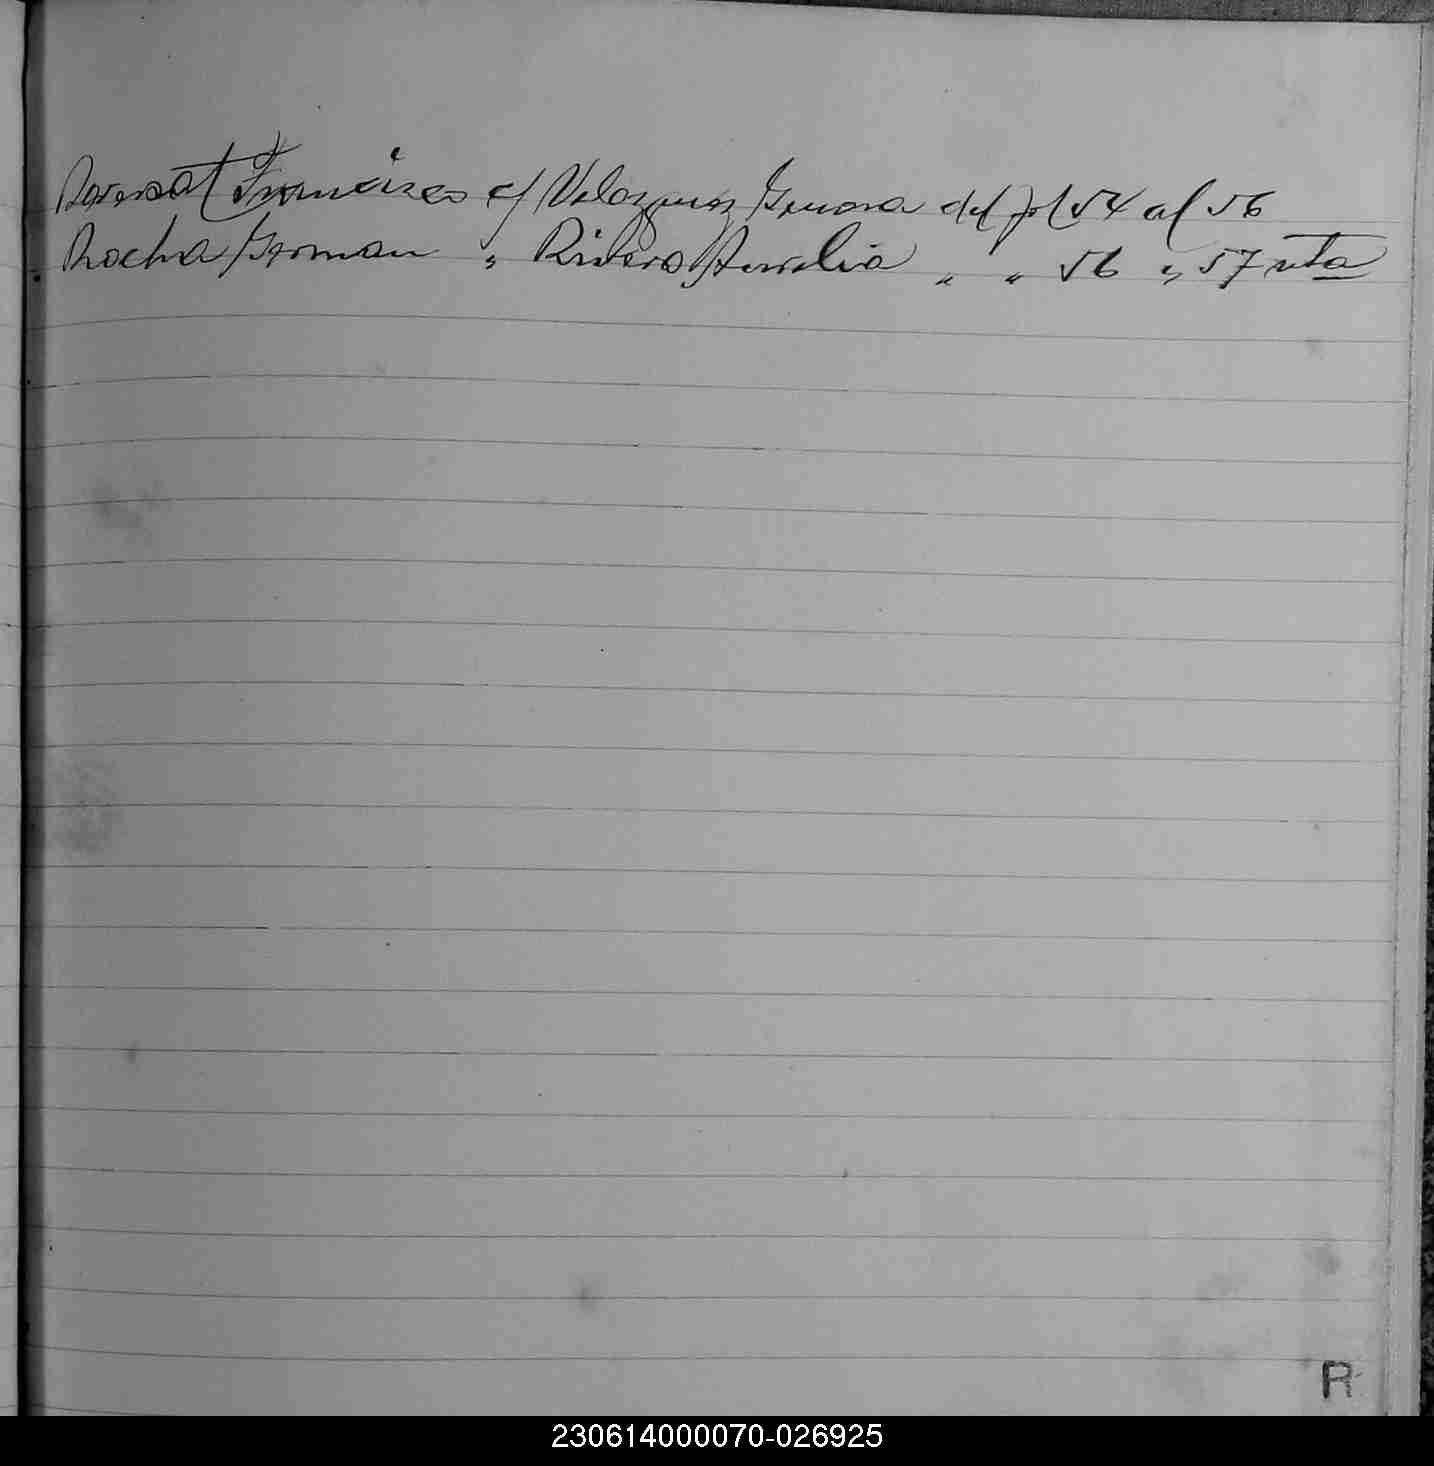 Francisco c/ Velazquez Genova del fol 54 al 56
Rocha German " Rivera Aurelia " " 56 " 57 vta
R
230614000070-026925